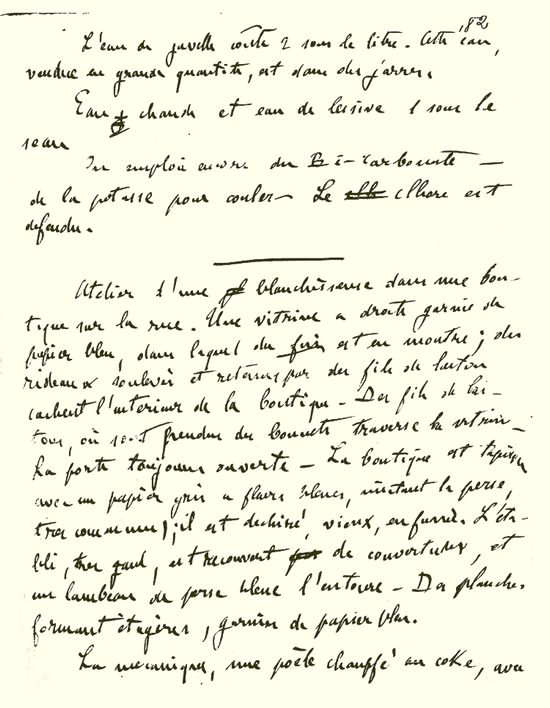 82
L'eau de javelle coûte 2 sous le litre. Cette eau,
vendue en grande quantité, est dans des jarres.
Eau chaude et eau de lessive 1 sous le
seau
On emploie encore du Bi-carbonate —
de la potasse pour couler — Le chlore est
défendu.
Atelier d'une blanchisseuse dans une bou-
tique sur la rue. Une vitrine à droite garnie de
papier bleu, dans laquelle du fin est en montre ; des
rideaux soulevés et retenus par des fils de laiton
cachent l'intérieur de la boutique — Des fils de lai-
ton, où sont pendus des bonnets traverse la vitrine
La porte toujours ouverte — La boutique est tapissée
avec un papier gris à fleurs bleues, imitant la perse,
très commune ; il est déchiré, vieux, enfumé. L'éta-
bli, très grand, est recouvert de couvertures, et
un lambeau de perse bleue l'entoure — Des planches
formant étagères, garnies de papier bleu.
La mécanique, une poêle chauffé au coke, avec